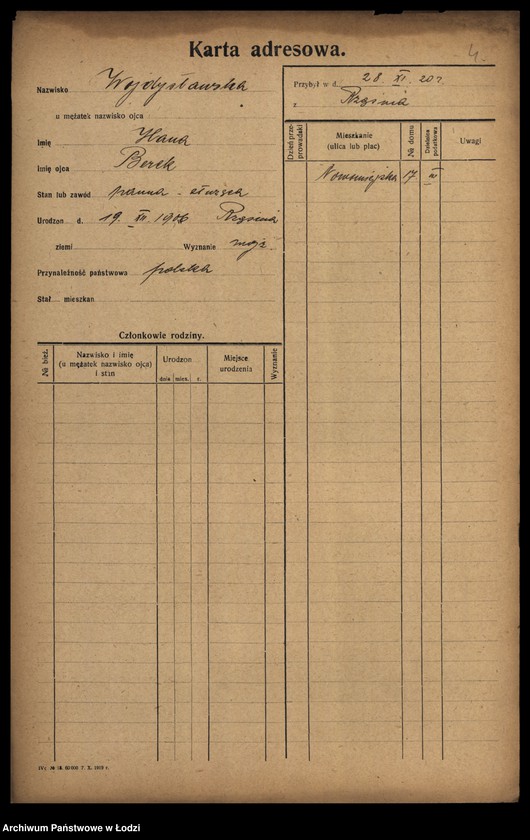 Karta adresowa.
4.
Nazwisko Wojdysławska
u mężatek nazwisko ojca
Imię Hana
Imię ojca Berek
Stan lub zawód panna - służąca
Urodzon d. 19. XII. 1906 Rząśnia
ziemi Wyznanie mojż.
Przynależność państwowa polska
Stał. mieszkan.
Członkowie rodziny.
№ bież.
Nazwisko i imię
(u mężatek nazwisko ojca)
i stan
Urodzon
dnia mies. r.
Miejsce
urodzenia
Wyznanie
Przybył w d. 28 XI. 20 r
z Rząśnia
Dzień przeprowadzki
Mieszkanie
(ulica lub plac)
№ domu
Dzielnica podatkowa
Uwagi
Nowomiejska 17 III
7. X. 1919 r.
Archiwum Państwowe w Łodzi